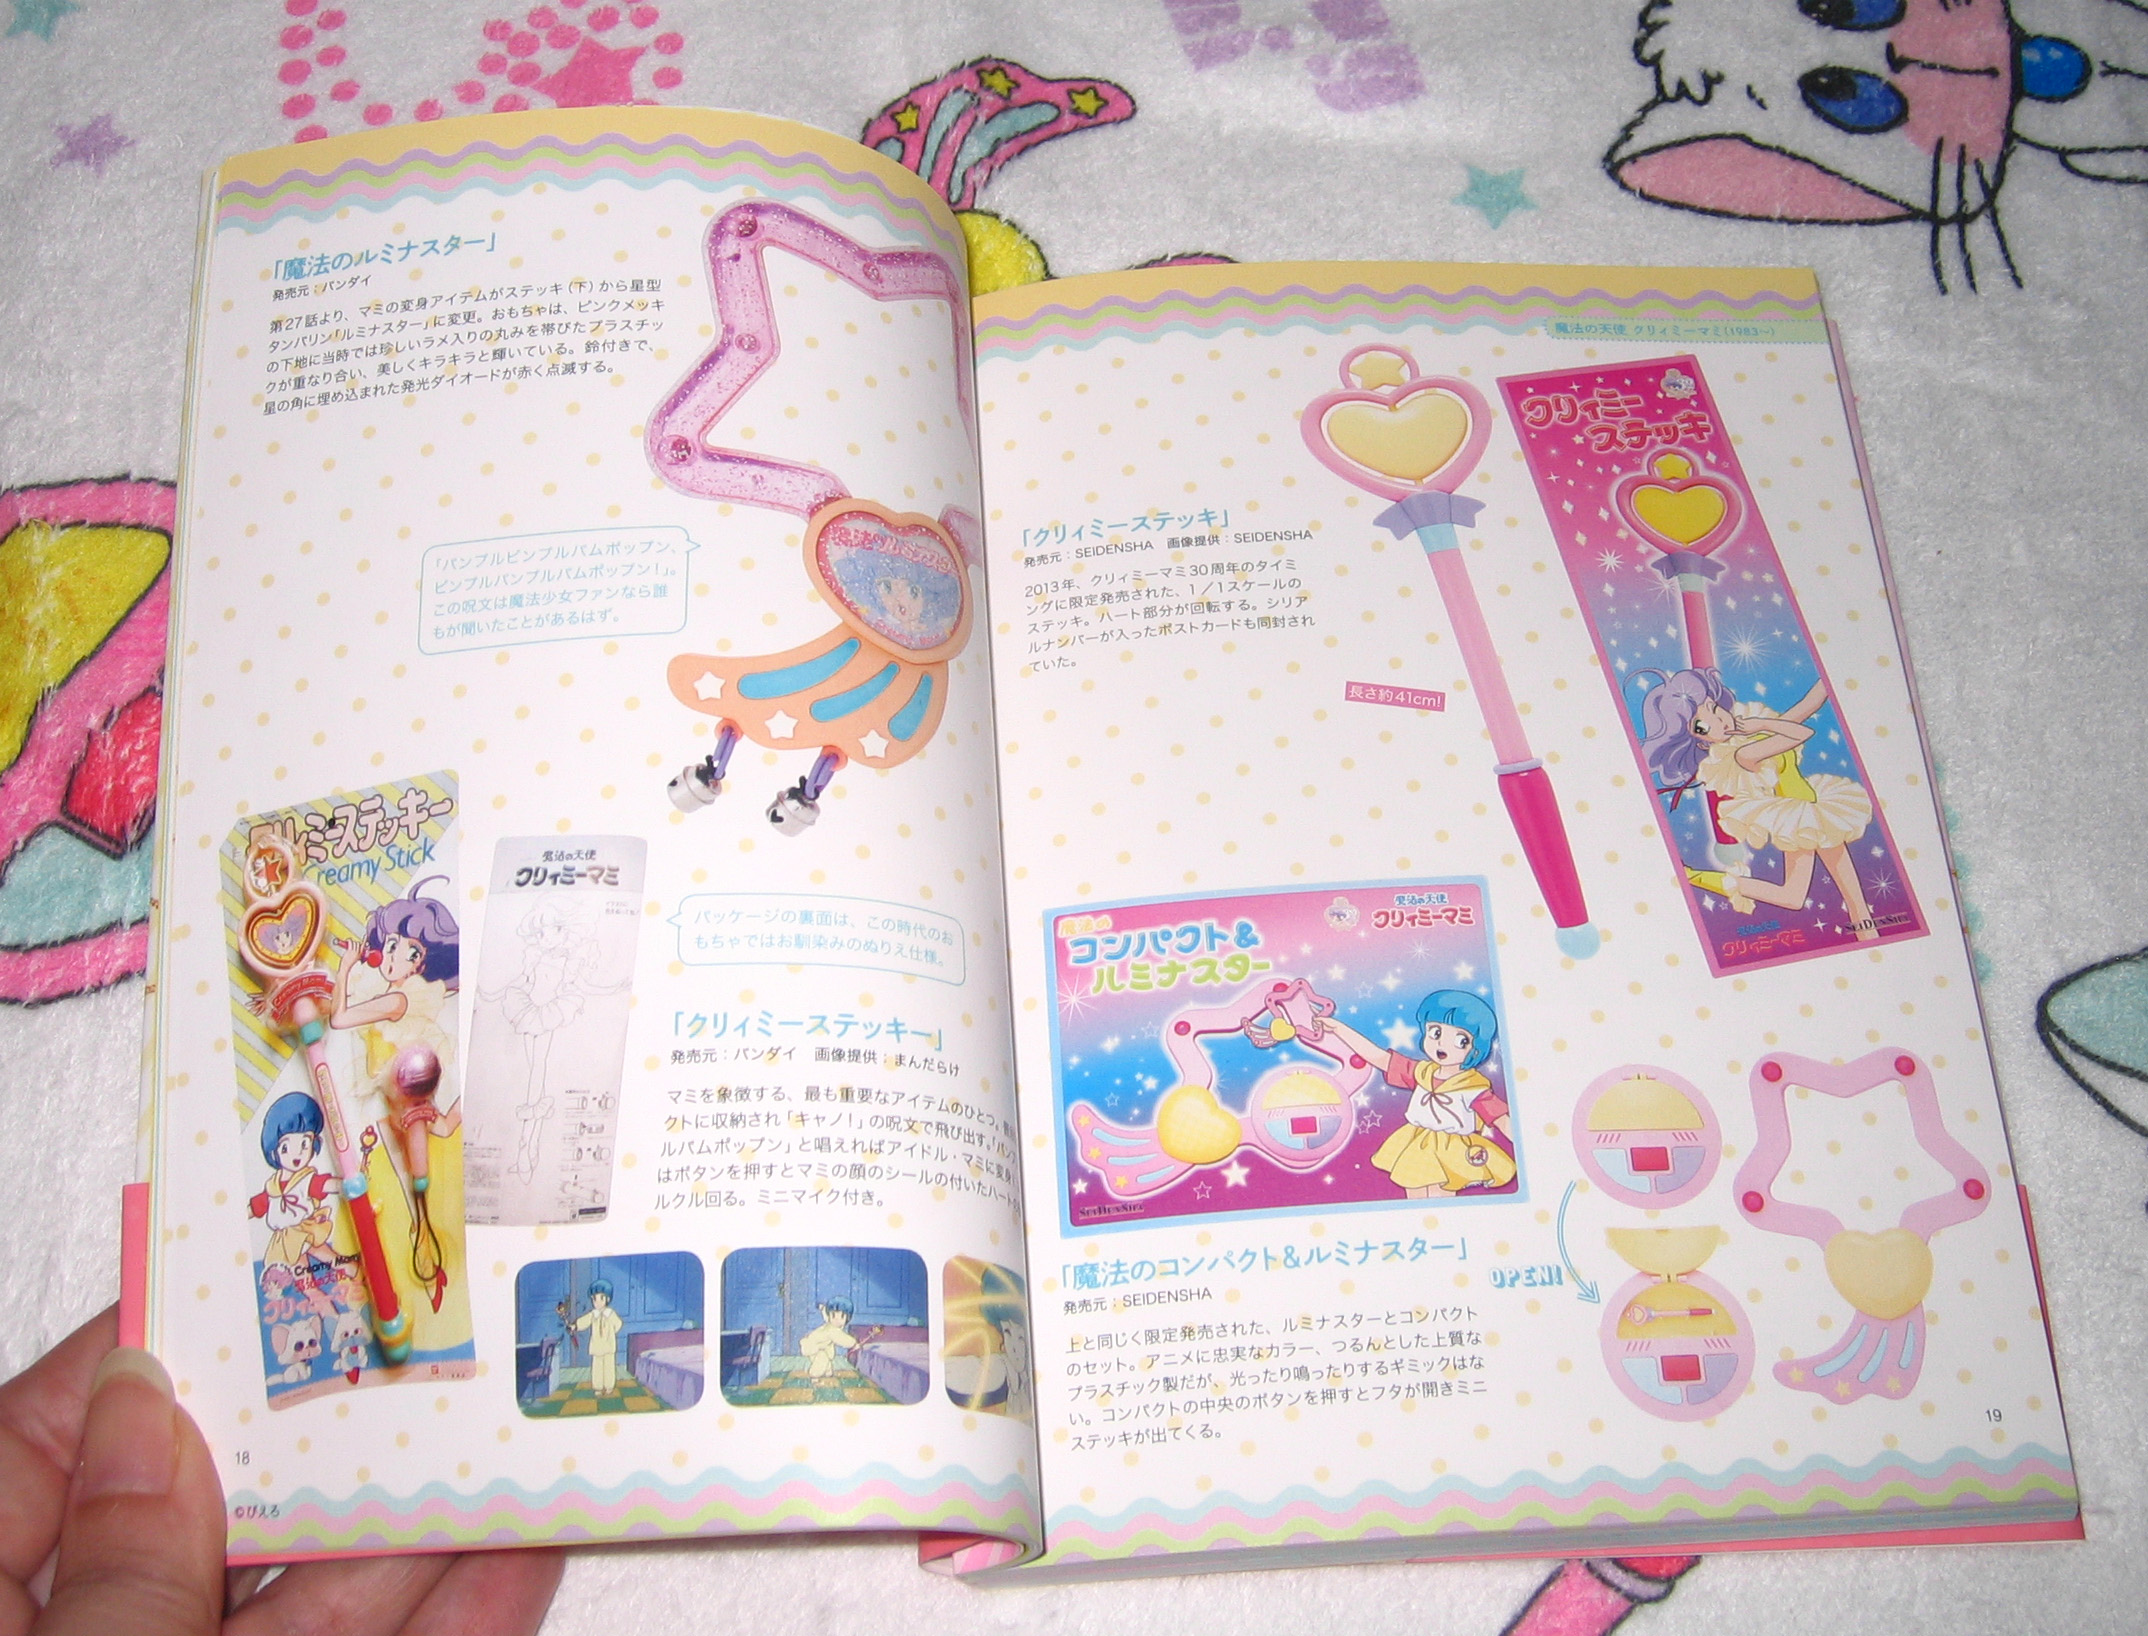 「魔法のルミナスター」
発売元：バンダイ
第27話より、マミの変身アイテムがステッキ(下)から星型
タンバリン「ルミナスター」に変更。おもちゃは、ピンクメッキ
の下地に当時では珍しいラメ入りの丸みを帯びたプラスチッ
クが重なり合い、美しくキラキラと輝いている。鈴付きで、
星の角に埋め込まれた発光ダイオードが赤く点滅する。
「パンプルピンプルパムポップン、
ピンプルパンプルパムポップン！」。
この呪文は魔法少女ファンなら誰
もが聞いたことがあるはず。
クリィミーステッキー
Creamy Stick
Creamy Mami
魔法の天使
クリィミーマミ
魔法の天使
クリィミーマミ
パッケージの裏面は、この時代のお
もちゃではお馴染みのぬりえ仕様。
「クリィミーステッキー」
発売元：バンダイ　画像提供：まんだらけ
マミを象徴する、最も重要なアイテムのひとつ。
クトに収納され「キャノ！」の呪文で飛び出す。「パンプ
ルパムポップン」と唱えればアイドル・マミに変身
はボタンを押すとマミの顔のシールの付いたハート
ルクル回る。ミニマイク付き。
18
©ぴえろ
魔法の天使 クリィミーマミ(1983〜)
クリィミー
ステッキ
魔法の天使
クリィミーマミ
SEIDENSHA
「クリィミーステッキ」
発売元：SEIDENSHA　画像提供：SEIDENSHA
2013年、クリィミーマミ30周年のタイミ
ングに限定発売された、1／1スケールの
ステッキ。ハート部分が回転する。シリア
ルナンバーが入ったポストカードも同封され
ていた。
長さ約41cm!
魔法の
コンパクト&
ルミナスター
魔法の天使
クリィミーマミ
SEIDENSHA
「魔法のコンパクト&ルミナスター」
発売元：SEIDENSHA
上と同じく限定発売された、ルミナスターとコンパクト
のセット。アニメに忠実なカラー、つるんとした上質な
プラスチック製だが、光ったり鳴ったりするギミックはな
い。コンパクトの中央のボタンを押すとフタが開きミニ
ステッキが出てくる。
OPEN!
19